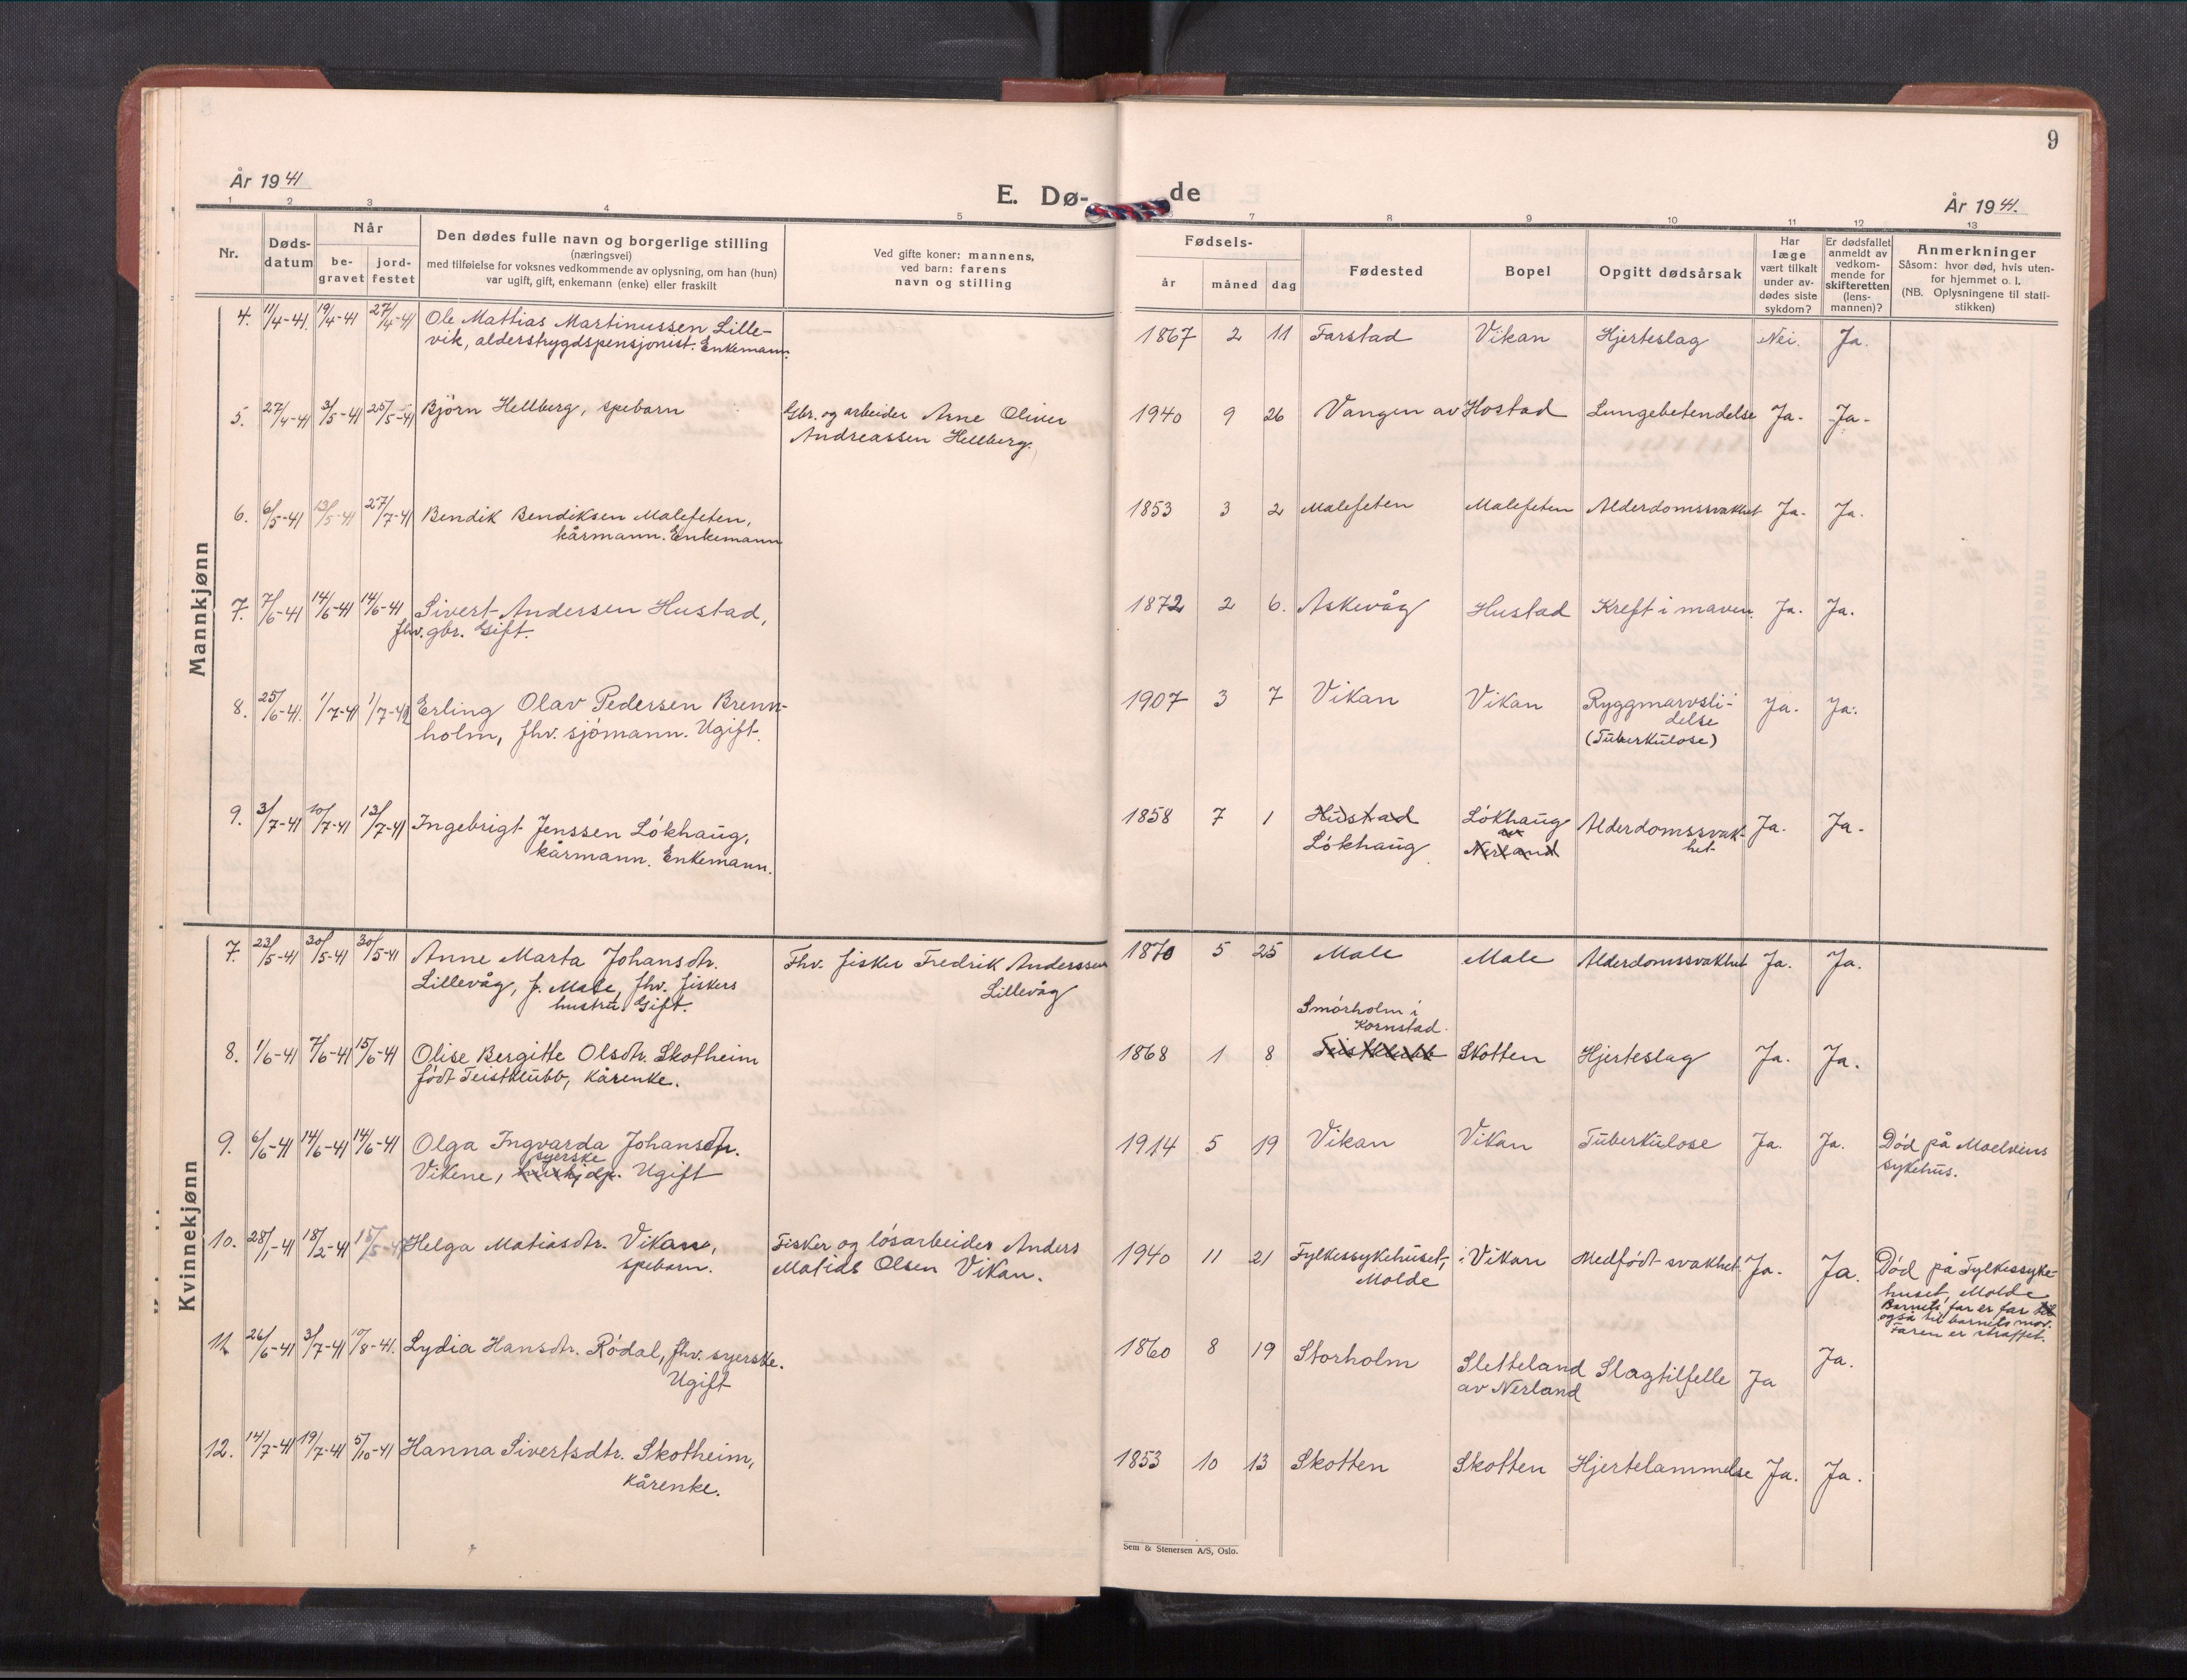 9
År 1941
E. Dø-
de
År 1941.
1 2 3 4 5 7 8 9 10 11 12 13
Nr.
Døds-
datum
Når
be-
gravet
jord-
festet
Den dødes fulle navn og borgerlige stilling
(næringsvei)
med tilføielse for voksnes vedkommende av oplysning, om han (hun)
var ugift, gift, enkemann (enke) eller fraskilt
Ved gifte koner: mannens,
ved barn: farens
navn og stilling
Fødsels-
år måned dag
Fødested
Bopel
Opgitt dødsårsak
Har
læge
vært tilkalt
under av-
dødes siste
sykdom?
Er dødsfallet
anmeldt av
vedkom-
mende for
skifteretten
(lens-
mannen)?
Anmerkninger
Såsom: hvor død, hvis uten-
for hjemmet o. l.
(NB. Oplysningene til stati-
stikken)
Mannkjønn
4. 11/4-41. 19/4-41 27/4-41 Ole Mattias Martinussen Lille-
vik, alderstrygdspensjonist. Enkemann.
1867 2 11 Farstad Vikan Hjerteslag Nei. Ja.
5. 27/4-41 3/5-41 25/5-41 Björn Hellberg, spebarn
Gbr. og arbeider Arne Oliver
Andreassen Hellberg.
1940 9 26 Vangen av Hostad Lungebetendelse Ja. Ja.
6. 6/5-41 13/5-41 27/7-41 Bendik Bendiksen Malefeten,
kårmann. Enkemann
1853 3 2 Malefeten Malefeten Alderdomssvakhet Ja. Ja.
7. 7/6-41 14/6-41 14/6-41 Sivert Andersen Hustad,
fhv. gbr. Gift.
1872 2 6. Askevåg Hustad Kreft i maven. Ja. Ja.
8. 25/6-41. 1/7-41 1/7-41 Erling Olav Pedersen Brenn-
holm, fhv. sjómann. Ugift.
1907 3 7 Vikan Vikan Ryggmarvsli-
delse
(Tuberkulose)
Ja. Ja.
9. 3/7-41 10/7-41 13/7-41 Ingebrigt Jenssen Lókhaug,
kårmann. Enkemann.
1858 7 1 Hustad
Lókhaug
Lókhaug
av
Nerland
Alderdomssvak-
het
Ja. Ja.
Kvinnekjønn
7. 23/5-41 30/5-41 30/5-41 Anne Marta Johansdtr.
Lillevåg, f. Male, fhv. fiskers
hustru. Gift.
Fhv. fisker Fredrik Anderssen
Lillevåg
1870 5 25 Male Male Alderdomssvakhet Ja. Ja.
8. 1/6-41 7/6-41 15/6-41 Olise Bergitte Olsdtr. Skotheim
født Teistklubb, kårenke.
Smórholm i
Kornstad.
1868 1 8 Teistklubb Skotten Hjerteslag Ja. Ja.
9. 6/6-41 14/6-41 14/6-41 Olga Ingvarda Johansdtr.
syerske
Vikene, hushjelp. Ugift
1914 5 19 Vikan Vikan Tuberkulose Ja. Ja. Død på Moelvens
sykehus.
10. 28/1-41 18/2-41 Helga Matiasdtr. Vikan,
spebarn.
Fisker og lósarbeider Anders
Matias Olsen Vikan.
1940 11 21 Fylkessykehuset,
Molde
Vikan Medfødt svakhet Ja. Ja. Død på Fylkessyke-
huset, Molde
Barnets far er far til
også til barnets mor.
Faren er straffet.
11. 26/6-41 3/7-41 10/8-41. Lydia Hansdtr. Ródal, fhv. syerske.
Ugift
1860 8 19 Storholm Sletteland
av Nerland
Slagtilfelle Ja Ja.
12. 14/7-41 19/7-41 5/10-41 Hanna Sivertsdtr. Skotheim,
kårenke.
1853 10 13 Skotten Skotten Hjertelammelse Ja. Ja.
Sem & Stenersen A/S, Oslo.